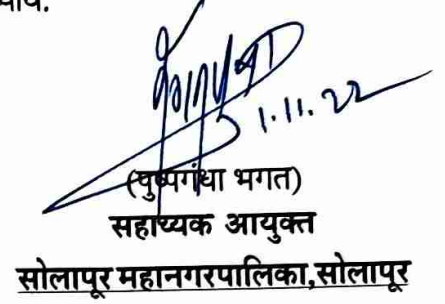 1.11.22
(पुष्पगंधा भगत)
सहाय्यक आयुक्त
सोलापूर महानगरपालिका,सोलापूर